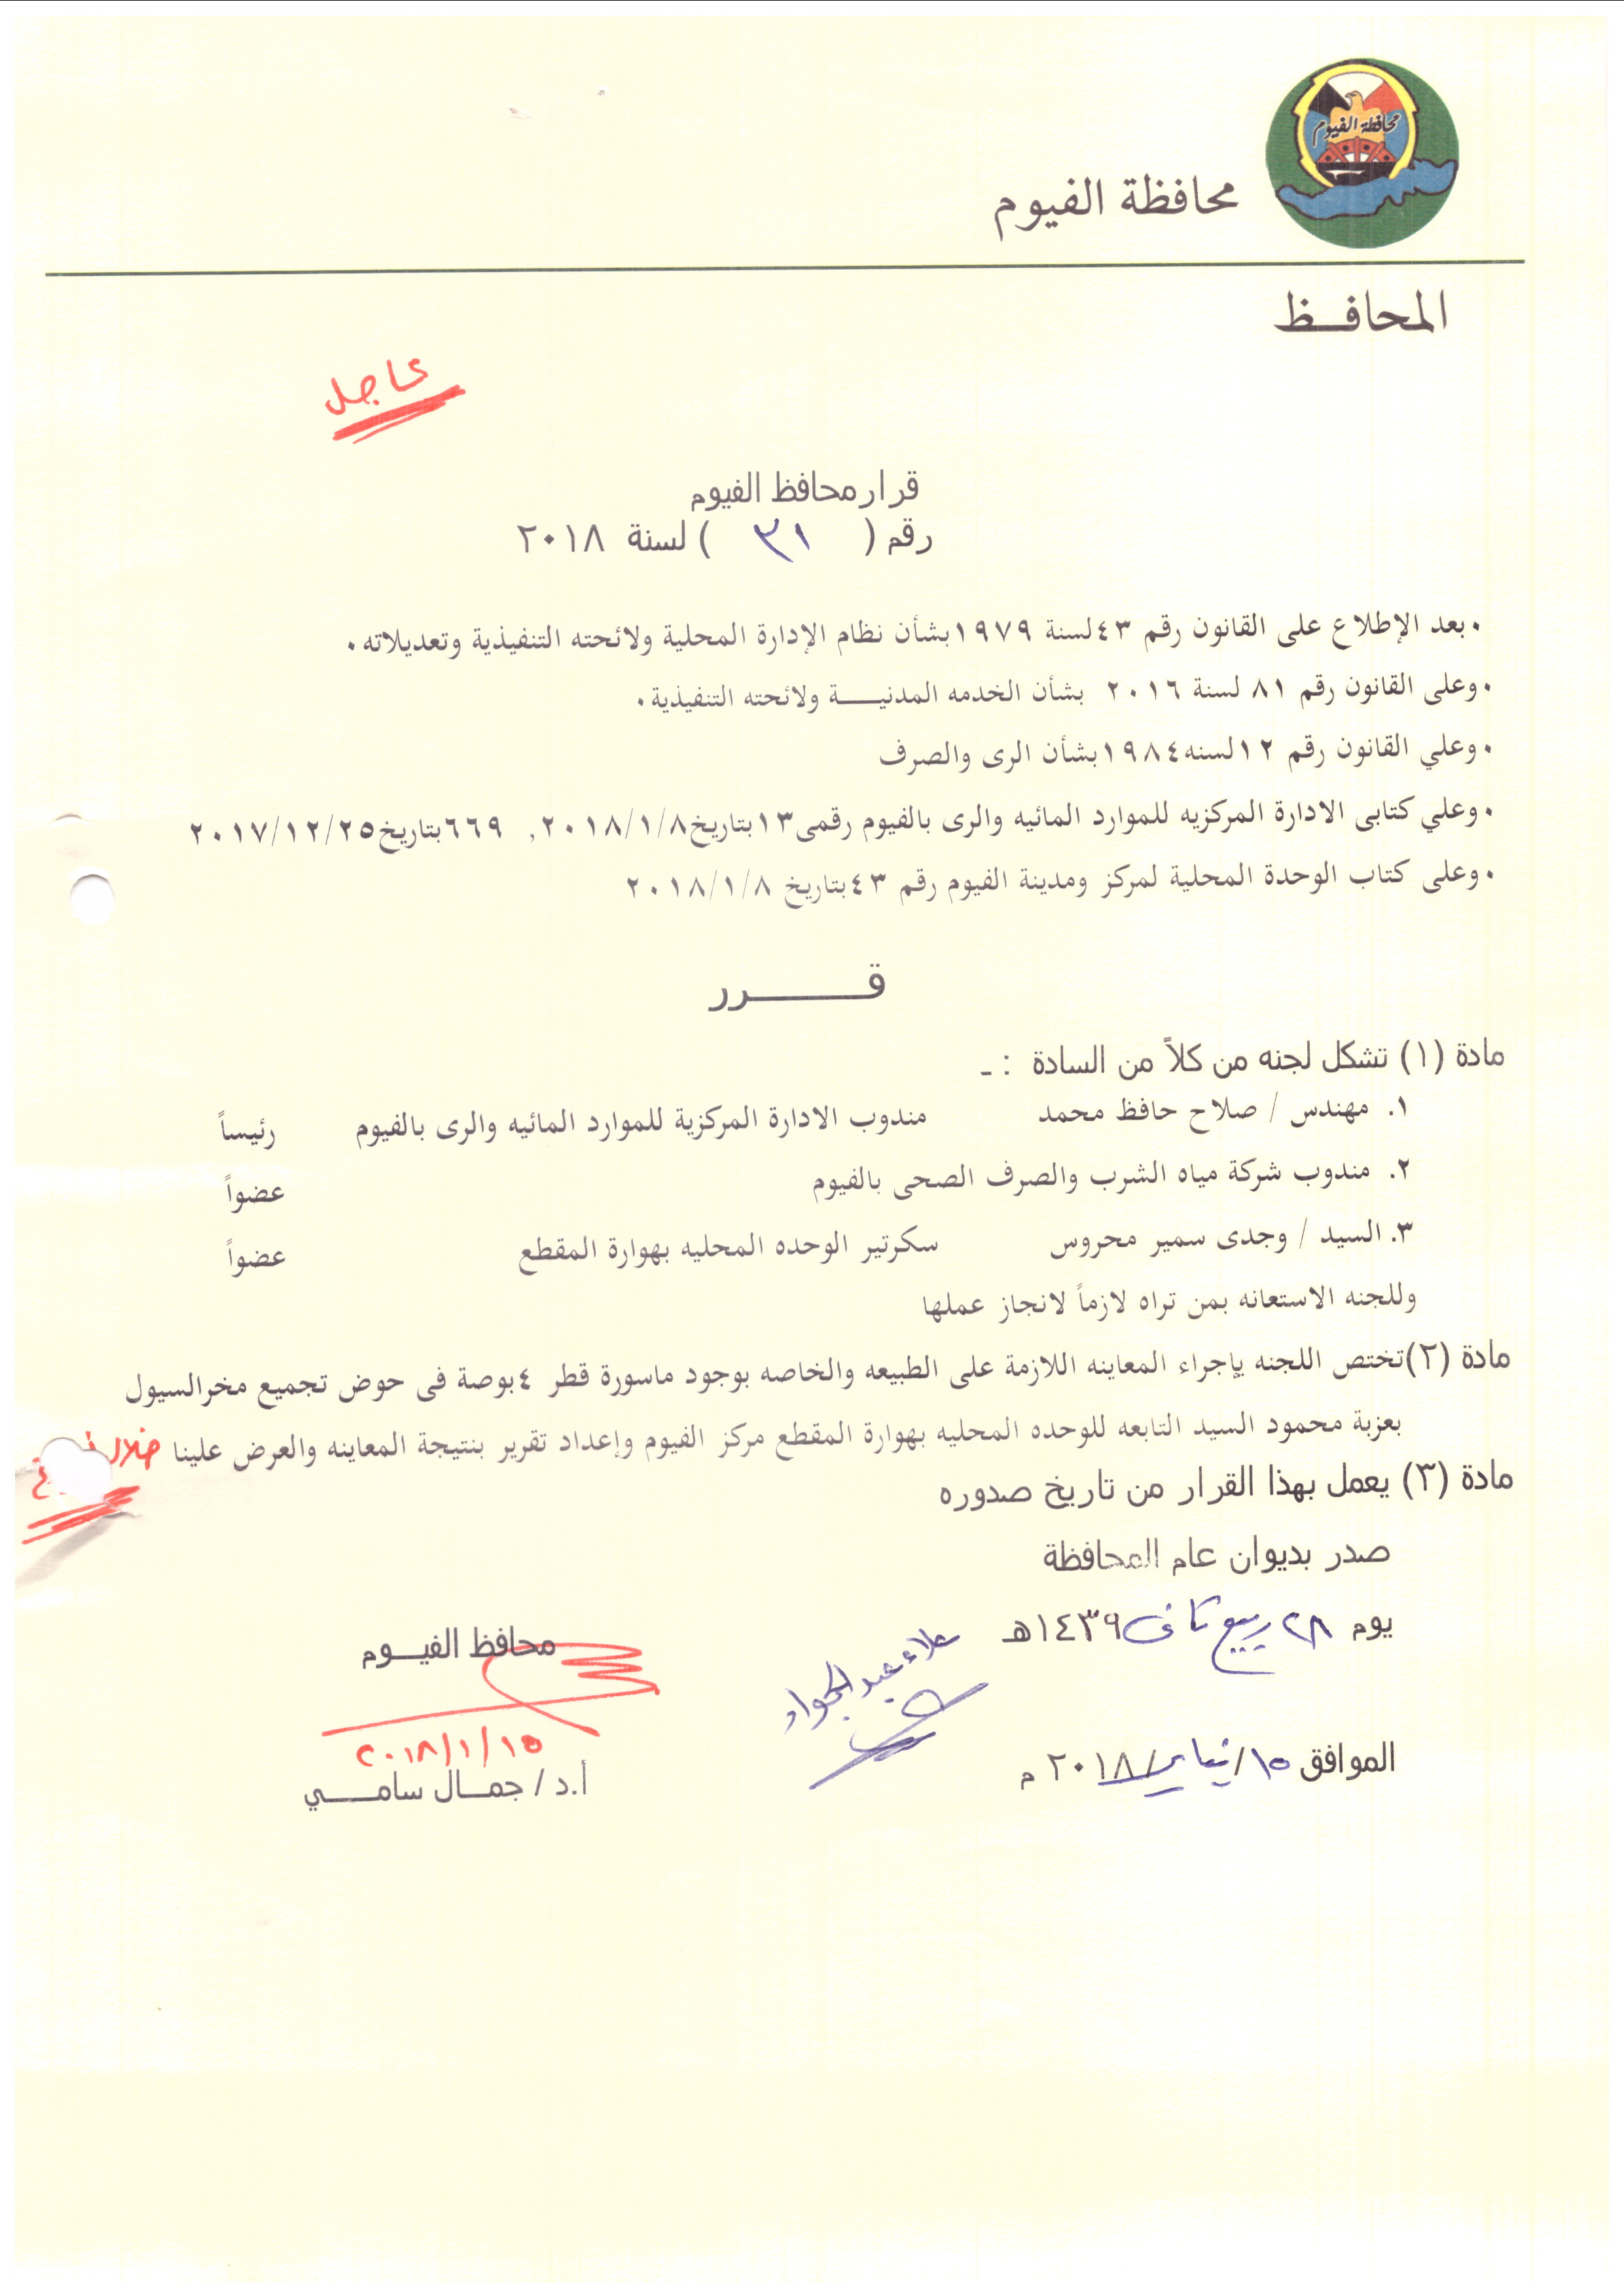 محافظة الفيوم
محافظة الفيوم
المحافــظ
عاجل
قرار محافظ الفيوم
رقم ( ٣١ ) لسنة ٢٠١٨
• بعد الإطلاع على القانون رقم ٤٣ لسنة ١٩٧٩ بشأن نظام الإدارة المحلية ولائحته التنفيذية وتعديلاته •
• وعلى القانون رقم ٨١ لسنة ٢٠١٦ بشأن الخدمه المدنيــــة ولائحته التنفيذية •
• وعلي القانون رقم ١٢ لسنه ١٩٨٤ بشأن الرى والصرف
• وعلي كتابى الادارة المركزيه للموارد المائيه والرى بالفيوم رقمى ١٣ بتاريخ ٢٠١٨/١/٨, ٦٦٩ بتاريخ ٢٠١٧/١٢/٢٥
• وعلى كتاب الوحدة المحلية لمركز ومدينة الفيوم رقم ٤٣ بتاريخ ٢٠١٨/١/٨
قـــــــــرر
مادة (١) تشكل لجنه من كلاً من السادة : ـ
١. مهندس / صلاح حافظ محمد مندوب الادارة المركزية للموارد المائيه والرى بالفيوم رئيساً
٢. مندوب شركة مياه الشرب والصرف الصحى بالفيوم عضواً
٣. السيد / وجدى سمير محروس سكرتير الوحده المحليه بهوارة المقطع عضواً
وللجنه الاستعانه بمن تراه لازماً لانجاز عملها
مادة (٢) تختص اللجنه بإجراء المعاينه اللازمة على الطبيعه والخاصه بوجود ماسورة قطر ٤ بوصة فى حوض تجميع مخرالسيول
بعزبة محمود السيد التابعه للوحده المحليه بهوارة المقطع مركز الفيوم وإعداد تقرير بنتيجة المعاينه والعرض علينا خلال
مادة (٣) يعمل بهذا القرار من تاريخ صدوره
صدر بديوان عام المحافظة
يوم ٢٨ ربيع ثانى ١٤٣٩هـ
علاء عبد الجواد
الموافق ١٥/ يناير/ ٢٠١٨ م
محافظ الفيـــوم
٢٠١٨/١/١٥
أ.د / جمـــال سامـــــي